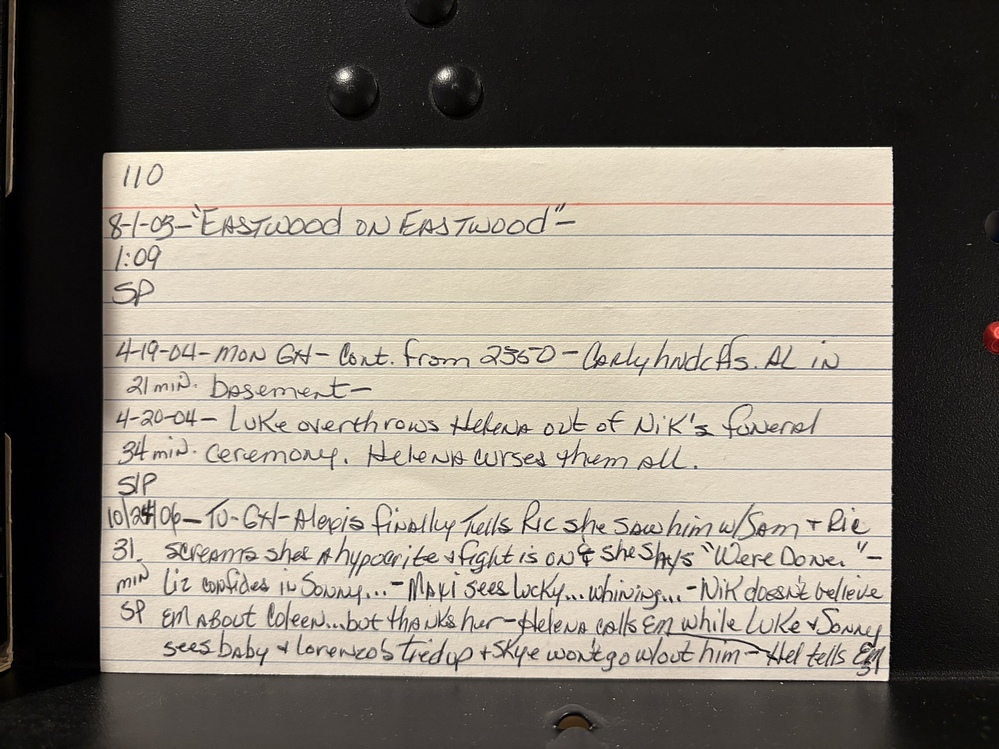 110
8-1-03-"EASTWOOD ON EASTWOOD"-
1:09
SP
4-19-04-MON GH- Cont. from 2350- Carly hndcffs. AL in
21 min. basement-
4-20-04- Luke overthrows Helena out of Nik's funeral
34 min. Ceremony. Helena curses them all.
SLP
10/24/06-TU-GH-Alexis finally tells Ric she saw him w/Sam + Ric
31 screams shes a hypocrite + fight is on & she says "Were Done."-
min Liz confides in Sonny...-Maxi sees Lucky...whining...-Nik doesn't believe
SP Em about Coleen...but thanks her-Helena calls Em while Luke + Sonny
sees baby + Lorenzo's tied up + Skye wont go w/out him- Hel tells Em